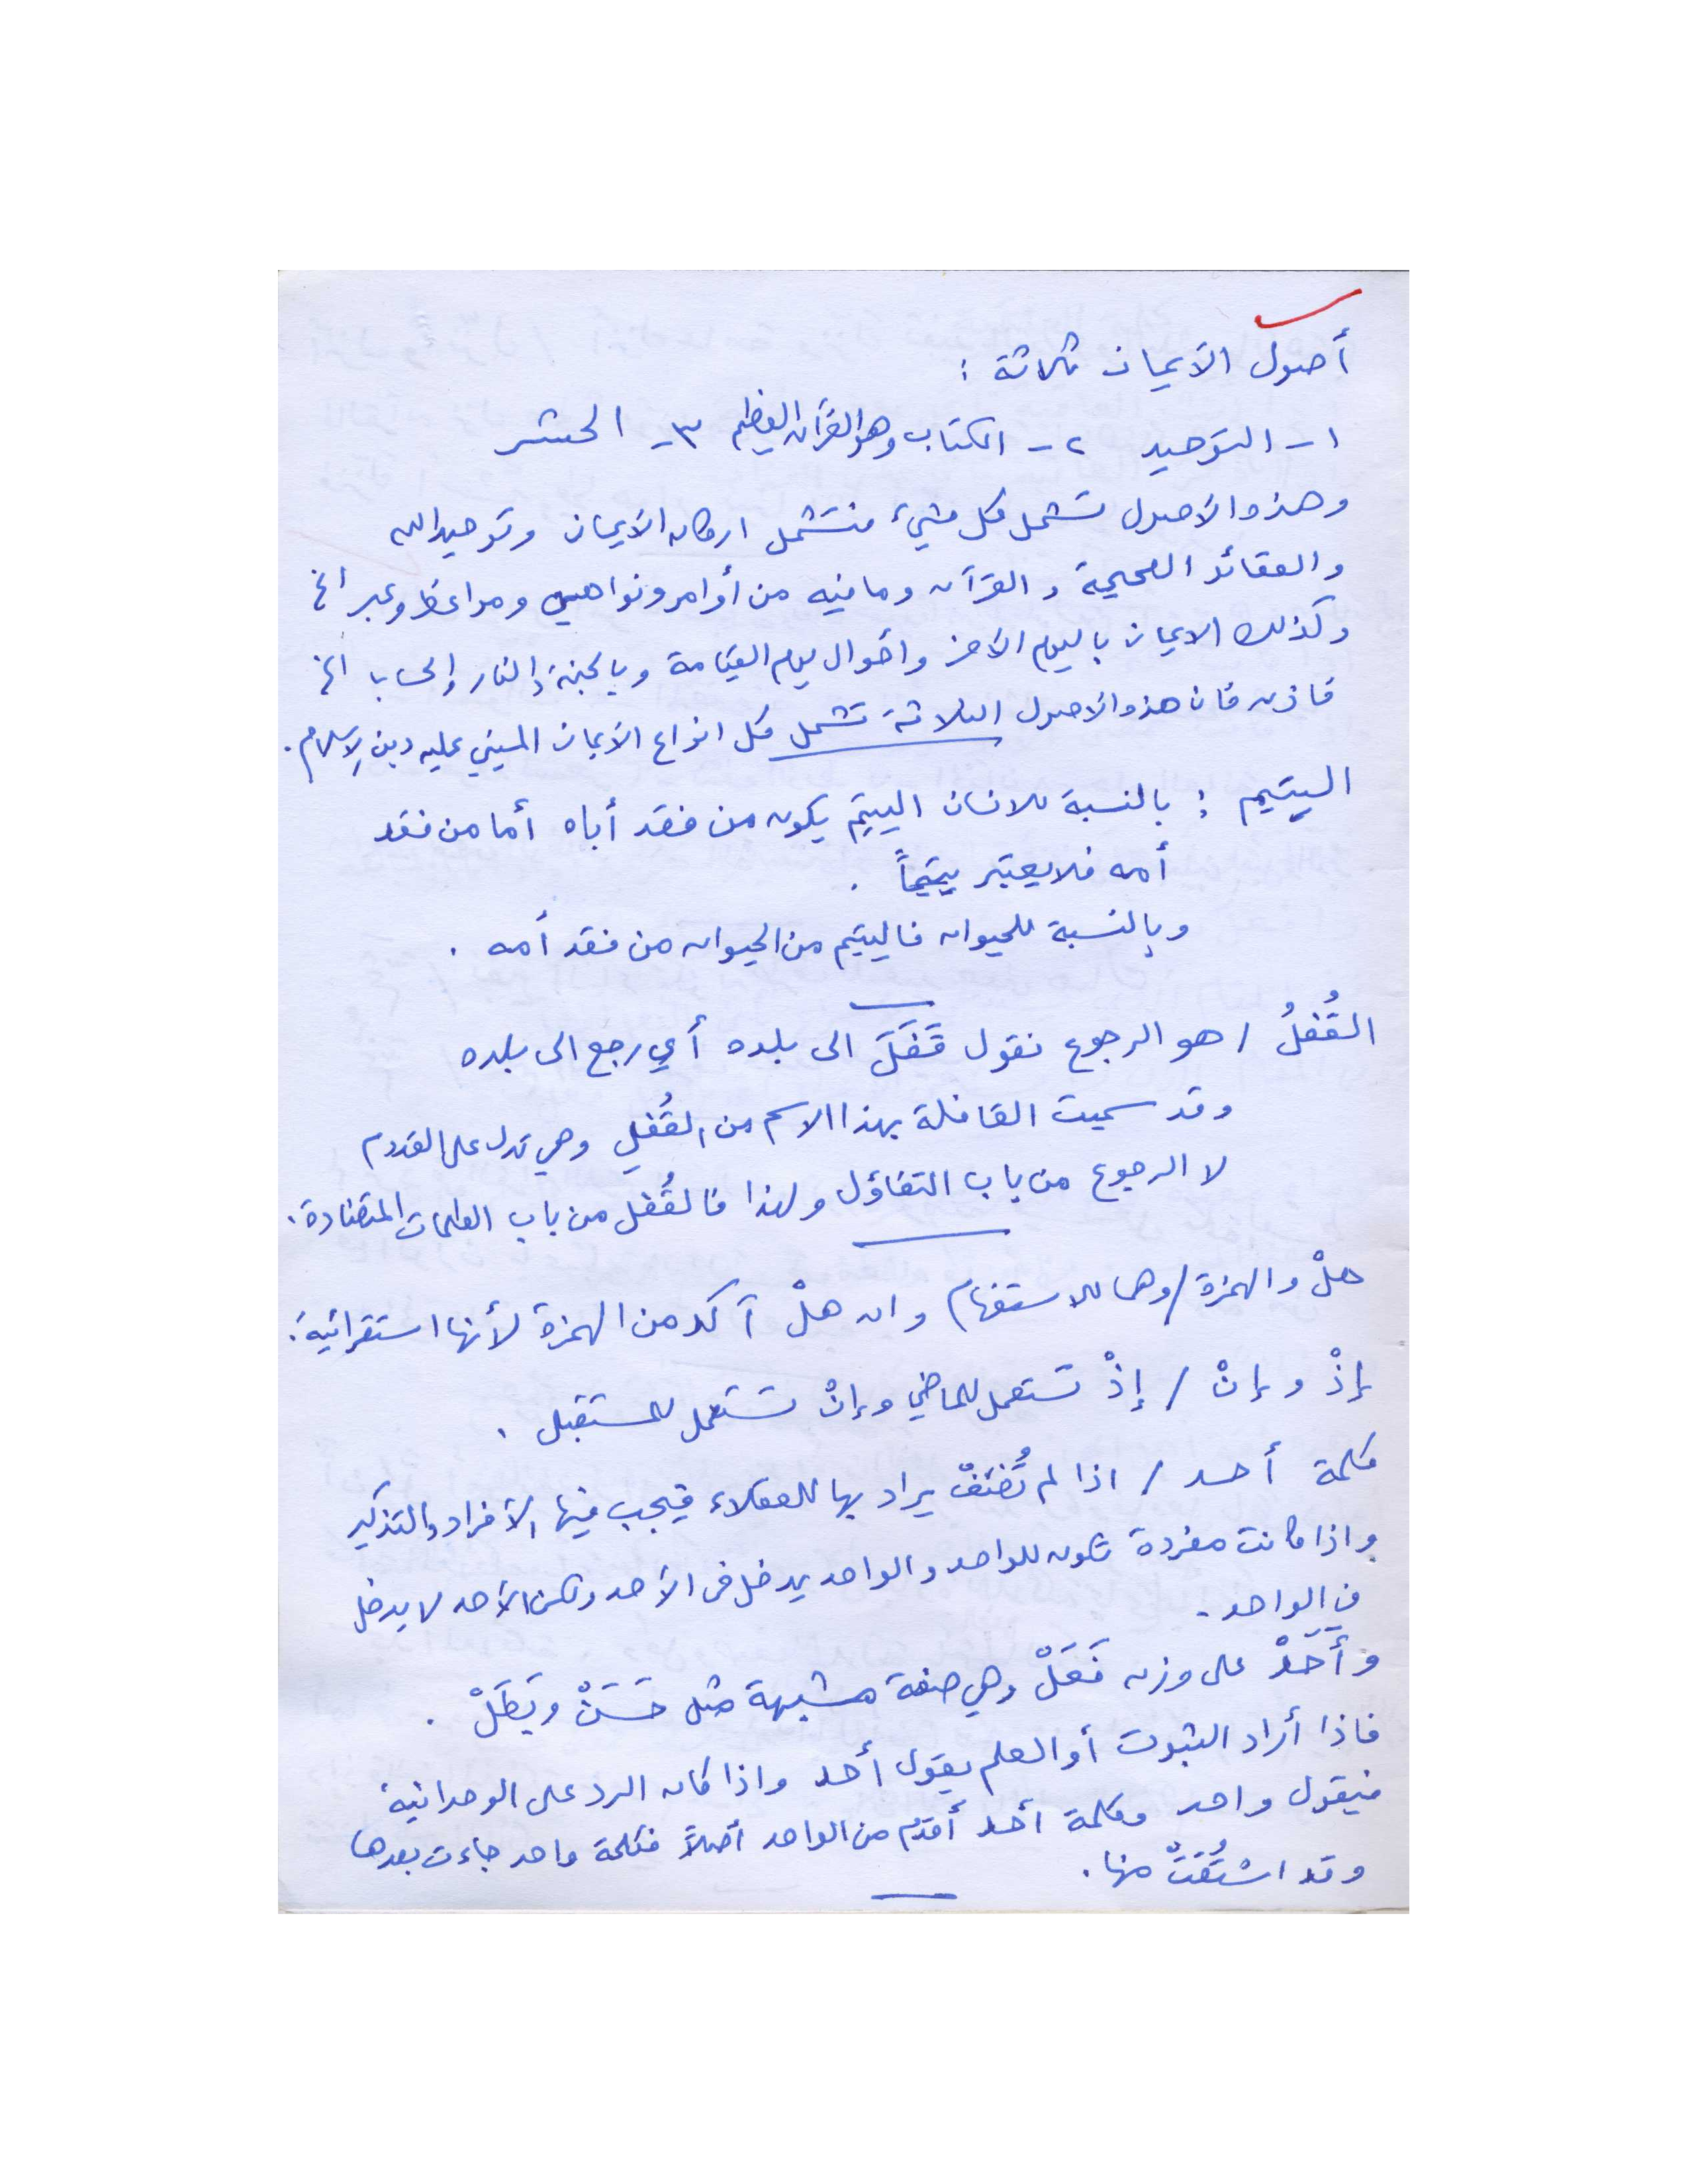 أصول الايمان ثلاثة :
١- التوحيد ٢- الكتاب وهو القرآن العظيم ٣- الحشر
وهذه الاصول تشمل كل شيء فتشمل اركان الايمان وتوحيد الله
والعقائد الصحيحة والقرآن وما فيه من أوامر ونواهي ومواعظ وعبر الخ
وكذلك الايمان باليوم الآخر واحوال يوم القيامة وبالجنة والنار والحساب الخ
فاذن فان هذه الاصول الثلاثة تشمل كل انواع الايمان المبني عليه دين الاسلام.
اليتيم : بالنسبة للانسان اليتيم يكون من فقد أباه أما من فقد
أمه فلا يعتبر يتيماً .
وبالنسبة للحيوان فاليتيم من الحيوان من فقد أمه .
القُفُلُ / هو الرجوع نقول قَفَلَ الى بلده أي رجع الى بلده
وقد سميت القافلة بهذا الاسم من القُفلِ وهي تدل على القدوم
لا الرجوع من باب التفاؤل ولهذا فالقُفل من باب الكلمات المتضادة.
هلْ والهمزة / وهما للاستفهام وان هلْ آكد من الهمزة لأنها استقرائية.
إذْ وإنْ / إذْ تستعمل للماضي وإنْ تستعمل للمستقبل .
كلمة أحد / اذا لم تُضَفْ يراد بها للعقلاء فيجب فيها الافراد والتذكير
واذا كانت مفردة تكون للواحد والواحد يدخل في الأحد ولكن الأحد لا يدخل
في الواحد .
وأَحَدْ على وزن فَعَلْ وهي صفة مشبهة مثل حَسَنْ وبَطَلْ .
فاذا أراد الثبوت أو العلم يقول أحد واذا كان الرد على الوحدانية
فيقول واحد وكلمة أحد أقدم من الواحد أصلاً فكلمة واحد جاءت بعدها
وقد اشتُقتْ منها .